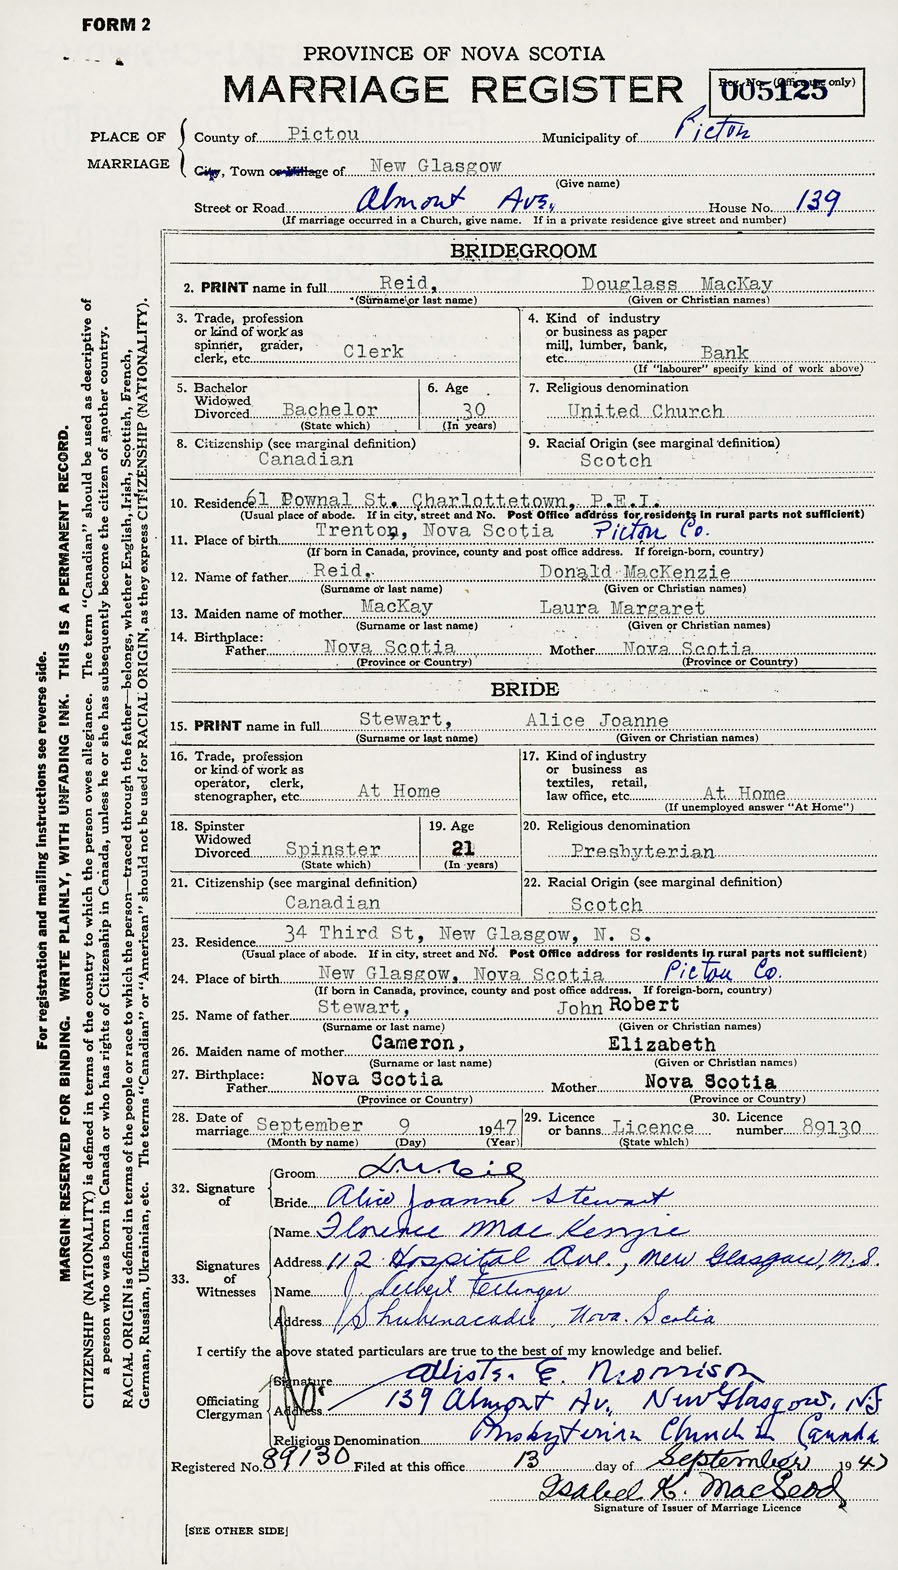 FORM 2
PROVINCE OF NOVA SCOTIA
MARRIAGE REGISTER
Reg. No. (Office use only)
005125
PLACE OF MARRIAGE
County of Pictou Municipality of Pictou
City, Town or Village of New Glasgow
(Give name)
Street or Road Almont Ave, House No. 139
(If marriage occurred in a Church, give name. If in a private residence give street and number)
BRIDEGROOM
2. PRINT name in full Reid, Douglass MacKay
(Surname or last name) (Given or Christian names)
3. Trade, profession or kind of work as spinner, grader, clerk, etc. Clerk
4. Kind of industry or business as paper mill, lumber, bank, etc. Bank
(If "labourer" specify kind of work above)
5. Bachelor Widowed Divorced Bachelor
(State which)
6. Age 30
(In years)
7. Religious denomination
United Church
8. Citizenship (see marginal definition)
Canadian
9. Racial Origin (see marginal definition)
Scotch
10. Residence 61 Pownal St. Charlottetown, P.E.I.
(Usual place of abode. If in city, street and No. Post Office address for residents in rural parts not sufficient)
11. Place of birth Trenton, Nova Scotia Pictou Co.
(If born in Canada, province, county and post office address. If foreign-born, country)
12. Name of father Reid, Donald MacKenzie
(Surname or last name) (Given or Christian names)
13. Maiden name of mother MacKay Laura Margaret
(Surname or last name) (Given or Christian names)
14. Birthplace:
Father Nova Scotia Mother Nova Scotia
(Province or Country) (Province or Country)
BRIDE
15. PRINT name in full Stewart, Alice Joanne
(Surname or last name) (Given or Christian names)
16. Trade, profession or kind of work as operator, clerk, stenographer, etc. At Home
17. Kind of industry or business as textiles, retail, law office, etc. At Home
(If unemployed answer "At Home")
18. Spinster Widowed Divorced Spinster
(State which)
19. Age 21
(In years)
20. Religious denomination
Presbyterian
21. Citizenship (see marginal definition)
Canadian
22. Racial Origin (see marginal definition)
Scotch
23. Residence 34 Third St, New Glasgow, N. S.
(Usual place of abode. If in city, street and No. Post Office address for residents in rural parts not sufficient)
24. Place of birth New Glasgow, Nova Scotia Pictou Co.
(If born in Canada, province, county and post office address. If foreign-born, country)
25. Name of father Stewart, John Robert
(Surname or last name) (Given or Christian names)
26. Maiden name of mother Cameron, Elizabeth
(Surname or last name) (Given or Christian names)
27. Birthplace:
Father Nova Scotia Mother Nova Scotia
(Province or Country) (Province or Country)
28. Date of marriage September 9 1947
(Month by name) (Day) (Year)
29. Licence or banns Licence
(State which)
30. Licence number 89130
32. Signature of
Groom
Bride Alice Joanne Stewart
33. Signatures of Witnesses
Name Florence MacKenzie
Address 112 Hospital Ave., New Glasgow, N.S.
Name
Address Shubenacadie, Nova Scotia
I certify the above stated particulars are true to the best of my knowledge and belief.
Officiating Clergyman
Signature E. Morrison
Address 139 Almont Av, New Glasgow, NS
Religious Denomination Presbyterian Church in Canada
Registered No. 89130 Filed at this office 13 day of September 1947
Isabel K. MacLeod
Signature of Issuer of Marriage Licence
[SEE OTHER SIDE]
For registration and mailing instructions see reverse side.
MARGIN RESERVED FOR BINDING. WRITE PLAINLY, WITH UNFADING INK. THIS IS A PERMANENT RECORD.
CITIZENSHIP (NATIONALITY) is defined in terms of the country to which the person owes allegiance. The term "Canadian" should be used as descriptive of
a person who was born in Canada or who has rights of Citizenship in Canada, unless he or she has subsequently become the citizen of another country.
RACIAL ORIGIN is defined in terms of the people or race to which the person—traced through the father—belongs, whether English, Irish, Scottish, French,
German, Russian, Ukrainian, etc. The terms "Canadian" or "American" should not be used for RACIAL ORIGIN, as they express CITIZENSHIP (NATIONALITY).